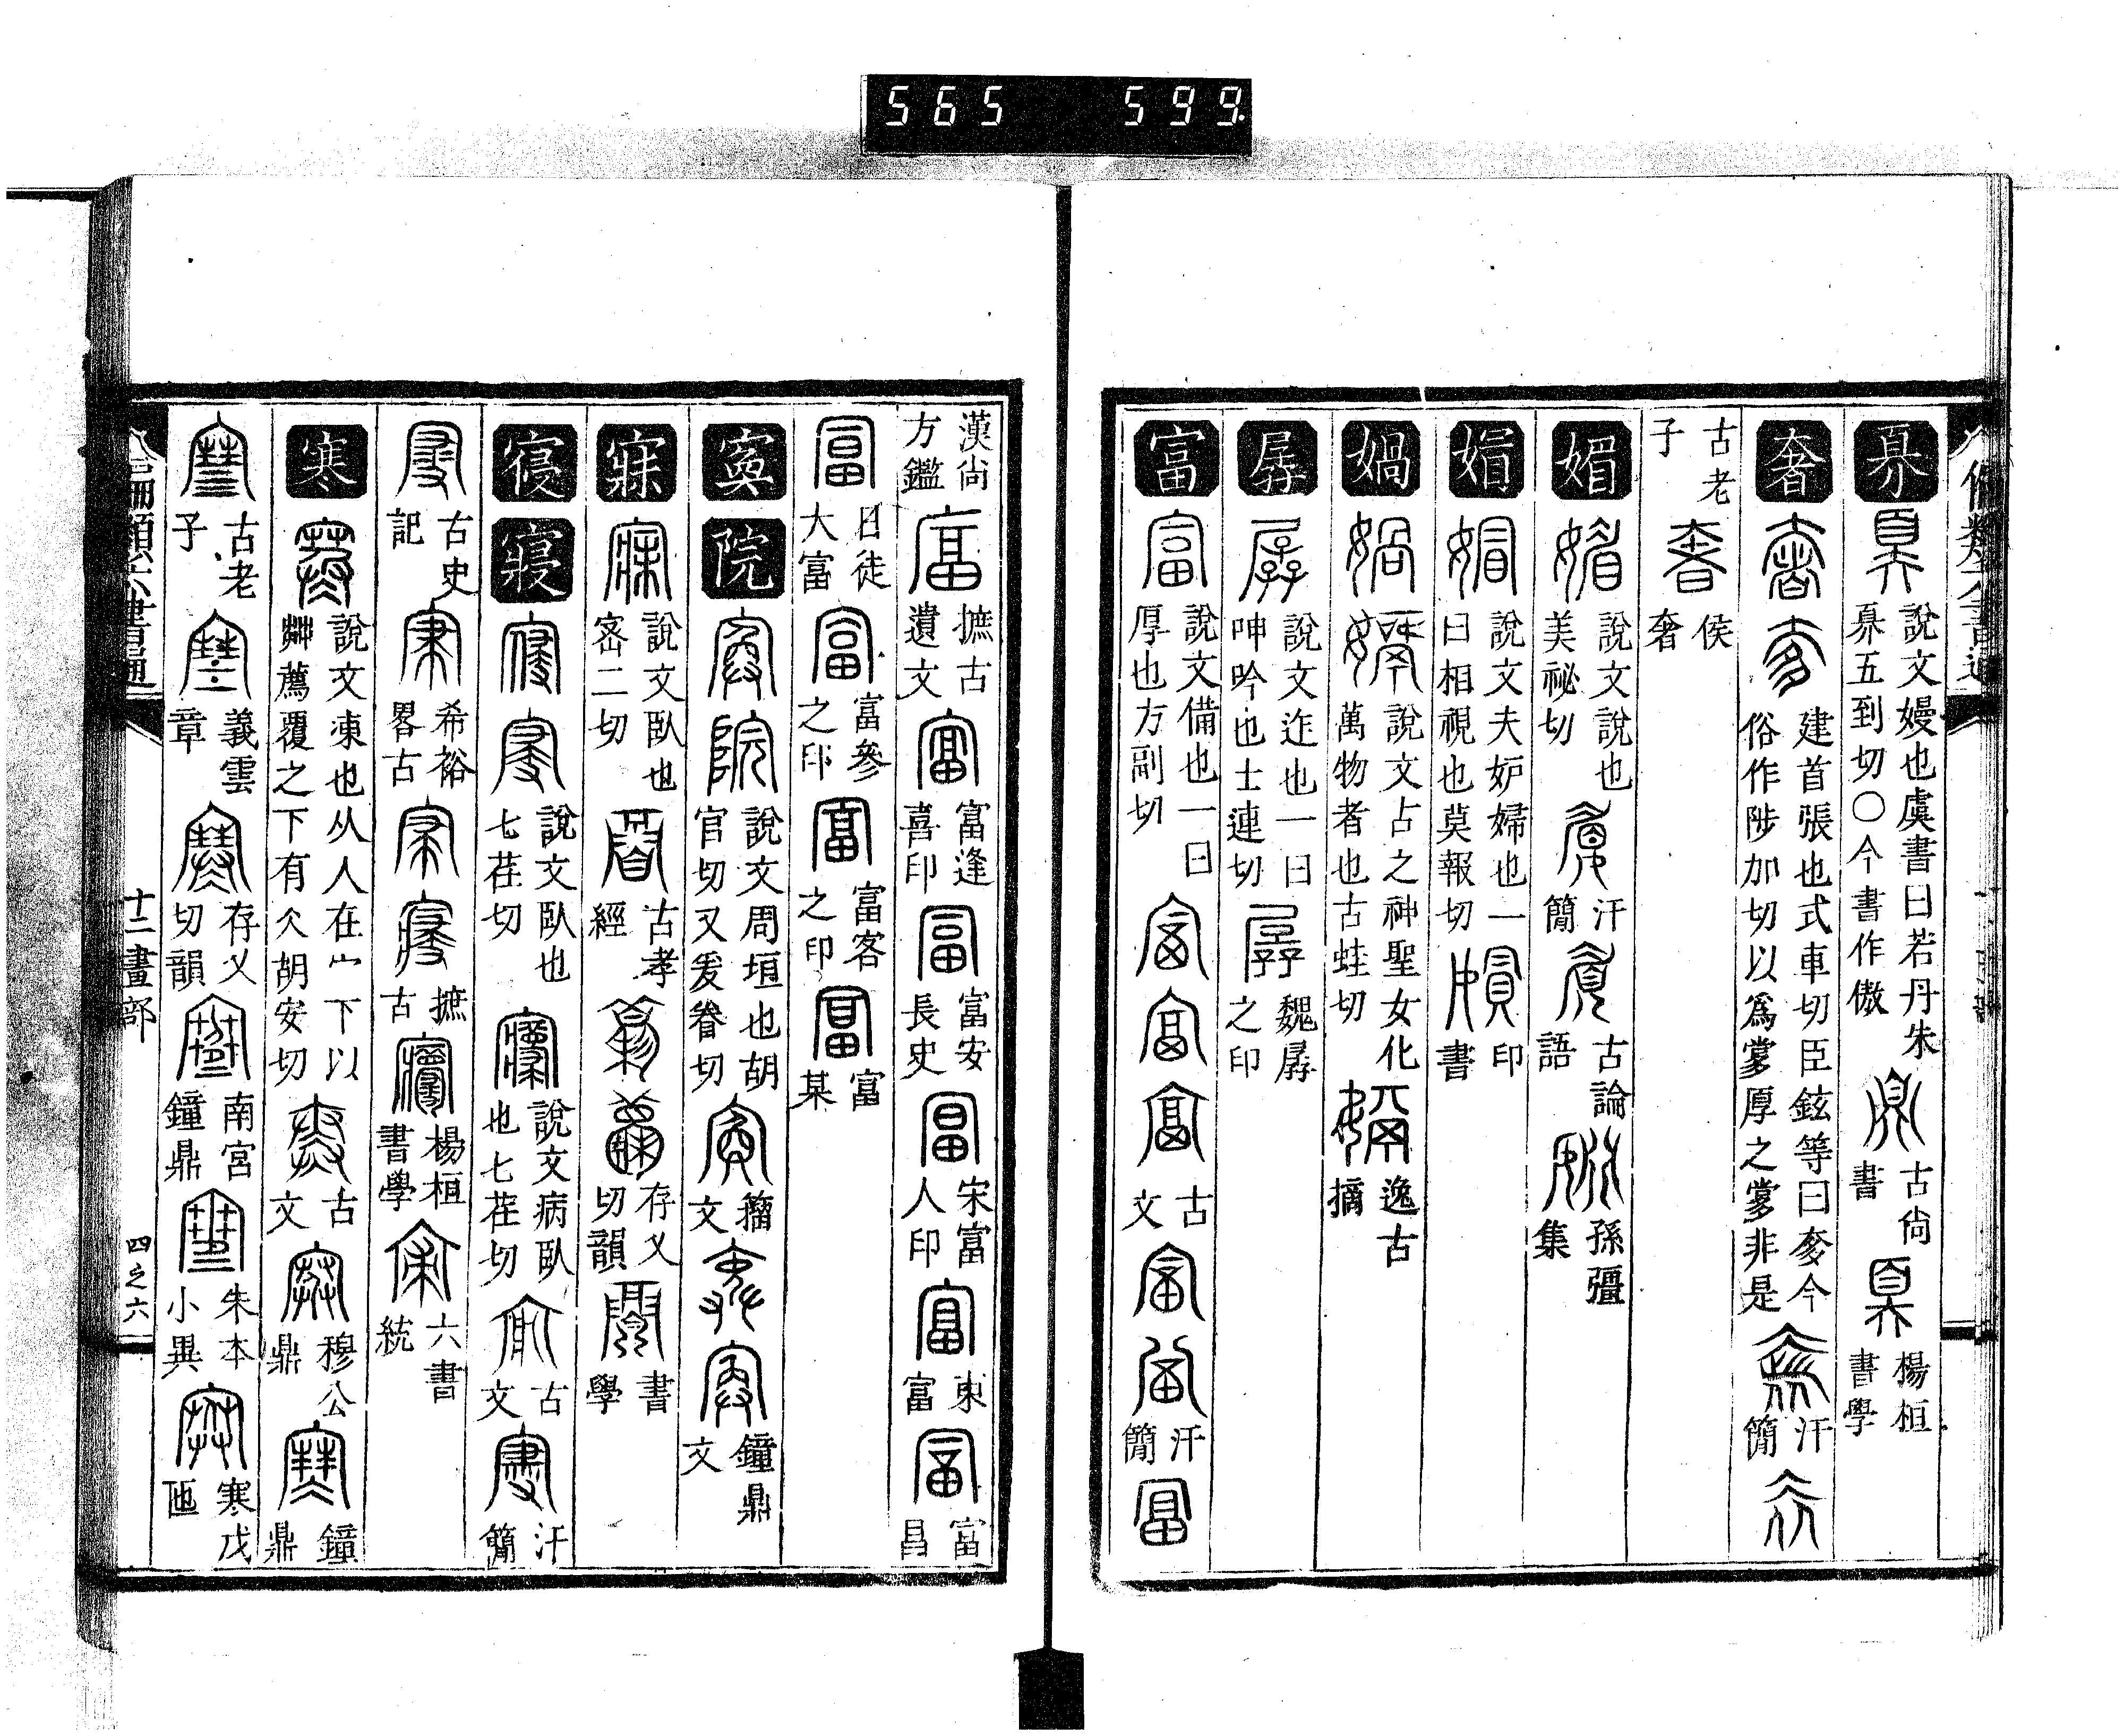 565 599
奡 說文嫚也虞書曰若丹朱奡五到切○今書作傲 古尚書 楊桓書學
奢 建首張也式車切臣鉉等曰奓今俗作陟加切以爲奓厚之奓非是 汗簡
古老子 侯奢
媚 說文說也美祕切 汗簡 古論語 孫彊集
媢 說文夫妒婦也一曰相視也莫報切 印書
媧 說文古之神聖女化萬物者也古蛙切 逸古摘
孱 說文迮也一曰呻吟也士連切 魏孱之印
富 說文備也一曰厚也方副切 古文 汗簡
漢尚方鑑 摭古遺文 富逢喜印 富安長史 宋富人印 東富 富昌
日徒大富 富參之印 富客之印 富某
寏 院 說文周垣也胡官切又爰眷切 籀文 鐘鼎文
寐 說文臥也密二切 古孝經 存乂切韻 書學
寑 寢 說文臥也七荏切 說文病臥也七荏切 古文 汗簡
古史記 希裕畧古 摭古 楊桓書學 六書統
寒 說文凍也从人在宀下以茻薦覆之下有仌胡安切 古文 穆公鼎 鐘鼎
古老子 義雲章 存乂切韻 南宮鐘鼎 朱本小異 寒戊匜
十二畫部 四之六